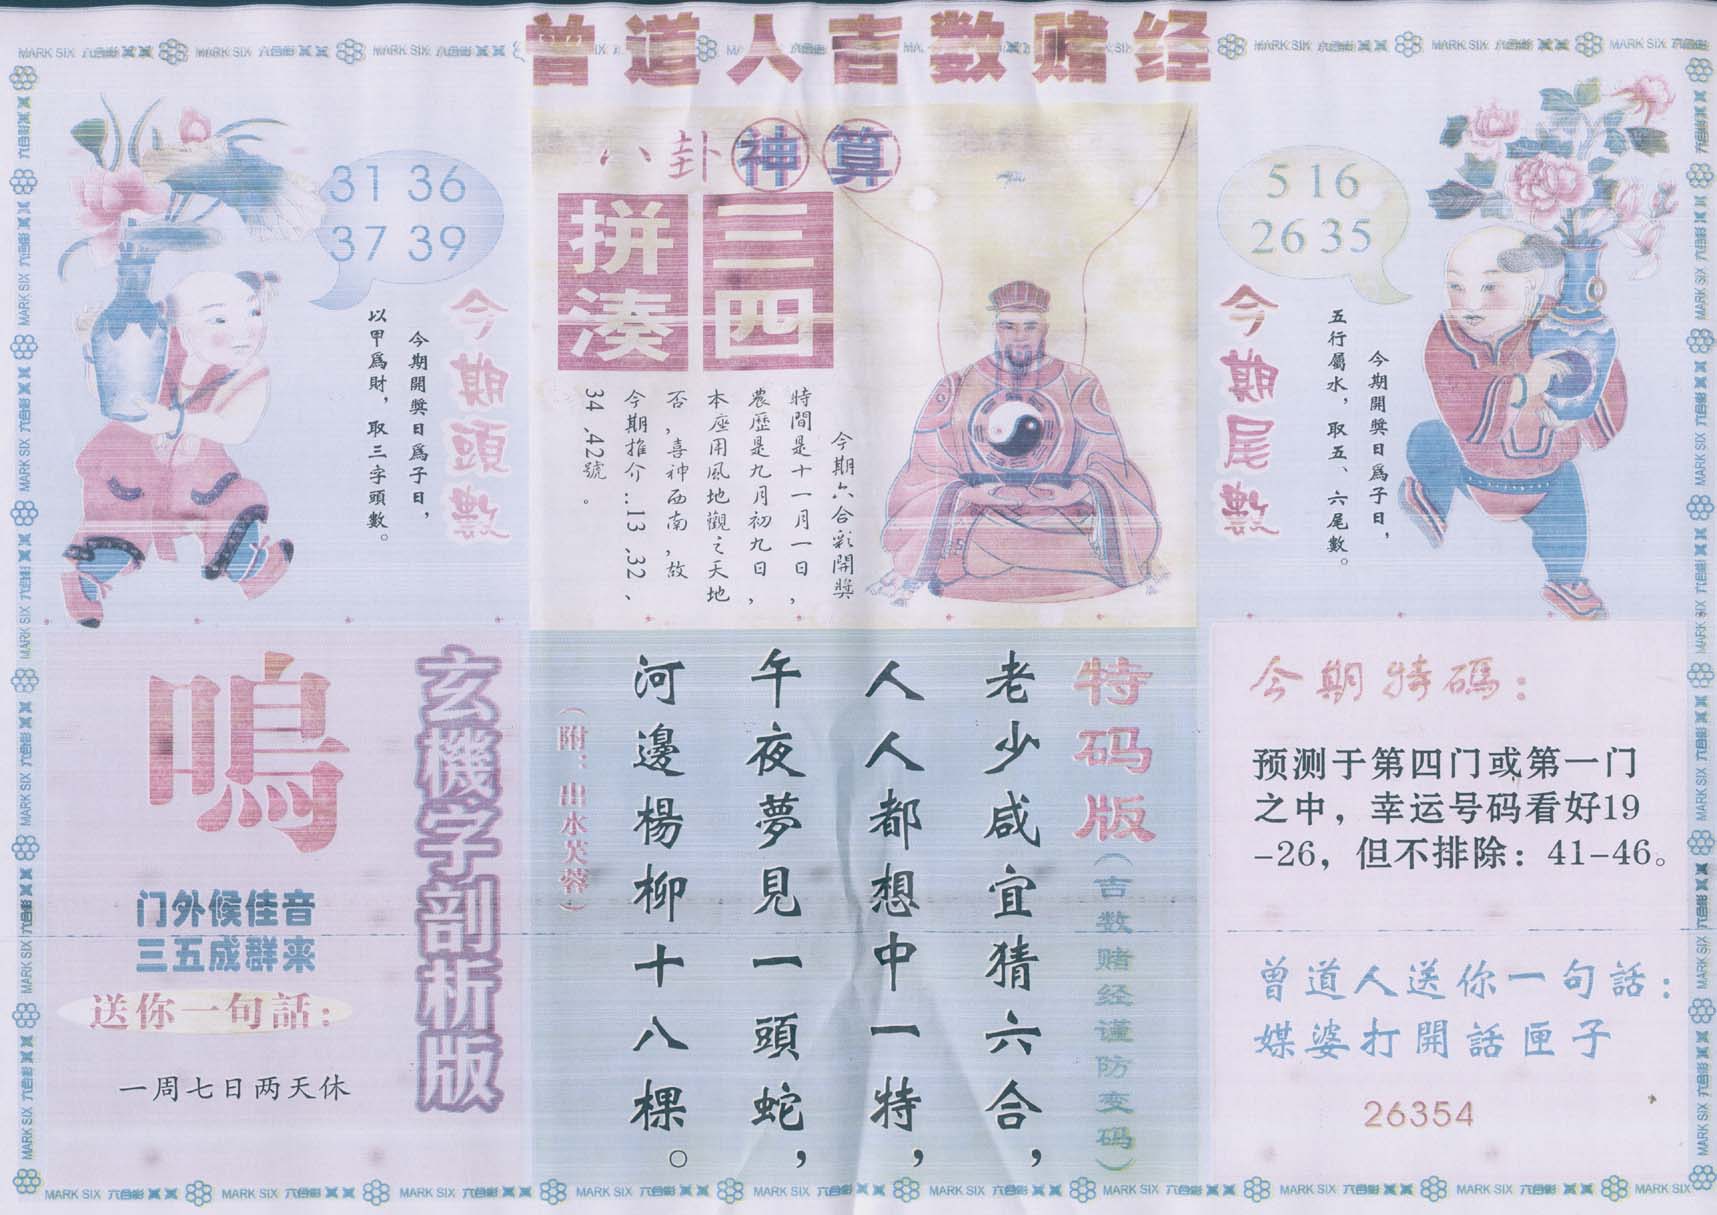 曾道人吉数赌经
MARK SIX 六合彩
八卦神算
三四
拼湊
今期六合彩開獎
時間是十一月一日，
農歷是九月初九日，
本座用風地觀之天地
否，喜神西南，故
今期推介：13、32、
34、42號。
31 36
37 39
今期頭數
今期開獎日爲子日，
以甲爲財，取三字頭數。
5 16
26 35
今期尾數
今期開獎日爲子日，
五行屬水，取五、六尾數。
玄機字剖析版
鳴
门外候佳音
三五成群来
送你一句話：
一周七日两天休
特码版
（吉数赌经谨防变码）
老少咸宜猜六合，
人人都想中一特，
午夜夢見一頭蛇，
河邊楊柳十八棵。
（附：出水芙蓉）
今期特碼：
预测于第四门或第一门
之中，幸运号码看好19
-26，但不排除：41-46。
曾道人送你一句話：
媒婆打開話匣子
26354